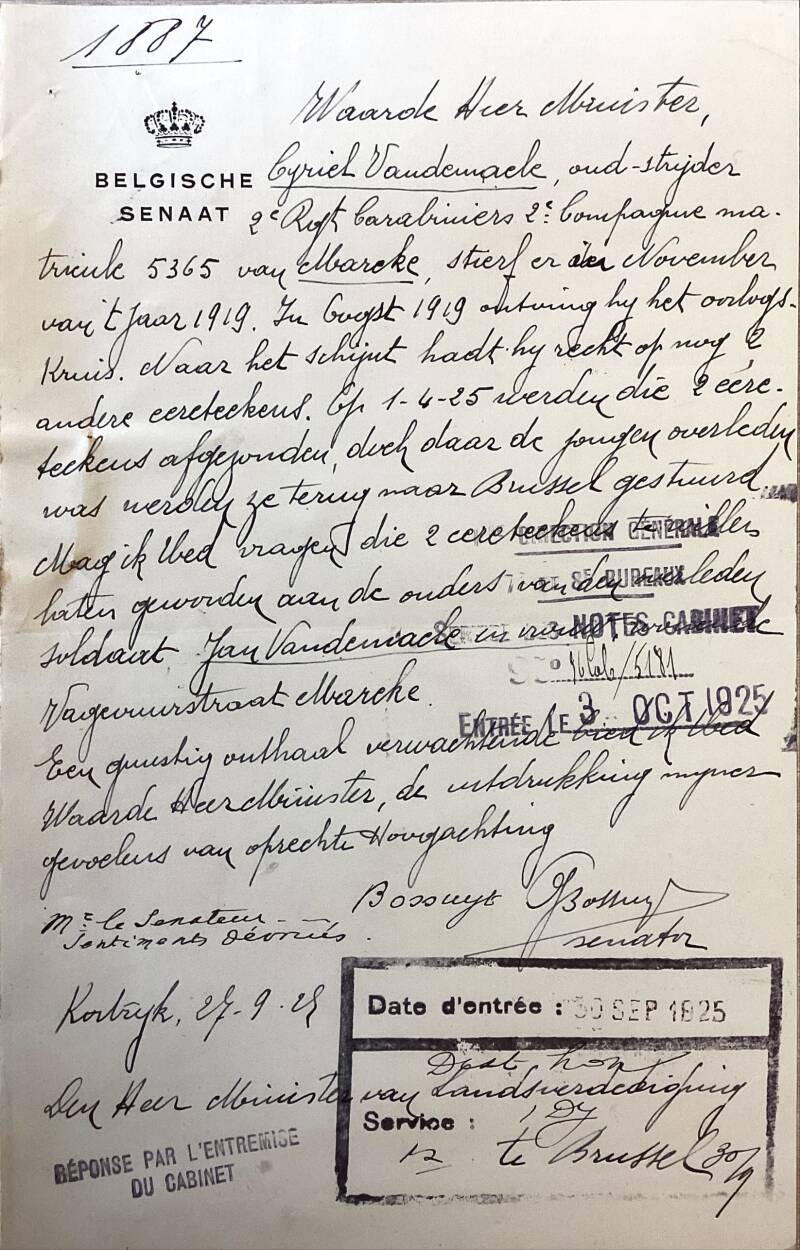 1887
Waarde Heer Minister,
BELGISCHE
SENAAT
Cyriel Vandemaele, oud-strijder
2e Rgt Carabiniers 2e Compagnie ma-
tricule 5365 van Marcke, stierf er in November
van 't Jaar 1919. In Oogst 1919 ontving hy het oorlogs-
Kruis. Naar het schijnt hadt hy recht op nog 2
andere eereteekens. Op 1-4-25 werden die 2 eere-
teekens afgezonden, doch daar de jongen overleden
was werden ze terug naar Brussel gestuurd.
Mag ik Ued vragen die 2 eereteekens te willen
laten geworden aan de ouders van den overleden
soldaat Jan Vandemaele
Vagevuurstraat Marcke.
Een gunstig onthaal verwachtende bied ik Ued
Waarde Heer Minister, de uitdrukking myner
gevoelens van oprechte Hoogachting
DIRECTION GÉNÉRALE
7e ET 8e BUREAUX
NOTES CABINET
/5181
ENTRÉE LE 3 OCT 1925
Bossuyt GBossuyt
senator
Mr le Senateur
Sentiments dévoués.
Kortryk, 27-9-25
Date d'entrée : 30 SEP 1925
Den Heer Minister van Landsverdediging
Service :
te Brussel 30/9
RÉPONSE PAR L'ENTREMISE
DU CABINET